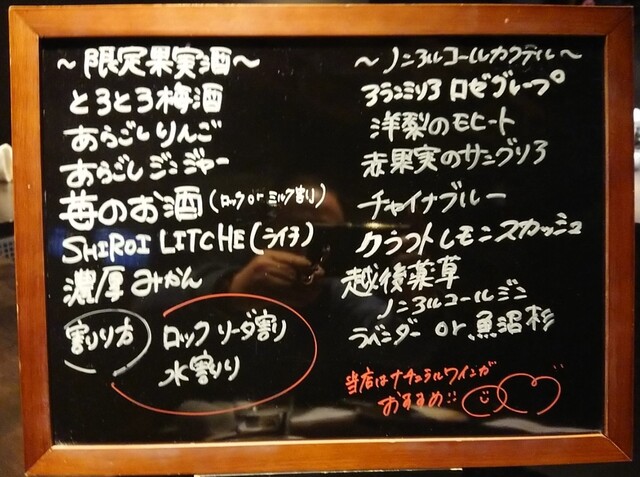 ～限定果実酒～
とろとろ梅酒
あらごしりんご
あらごしジンジャー
苺のお酒(ロックorミルク割り)
SHIROI LITCHE(ライチ)
濃厚みかん
割り方
ロック ソーダ割り
水割り
～ノンアルコールカクテル～
ロゼグレープ
洋梨のモヒート
赤果実のサングリア
チャイナブルー
クラフトレモンスカッシュ
越後薬草
ノンアルコールジン
ラベンダー or 魚沼杉
当店はナチュラルワインが
おすすめ!!